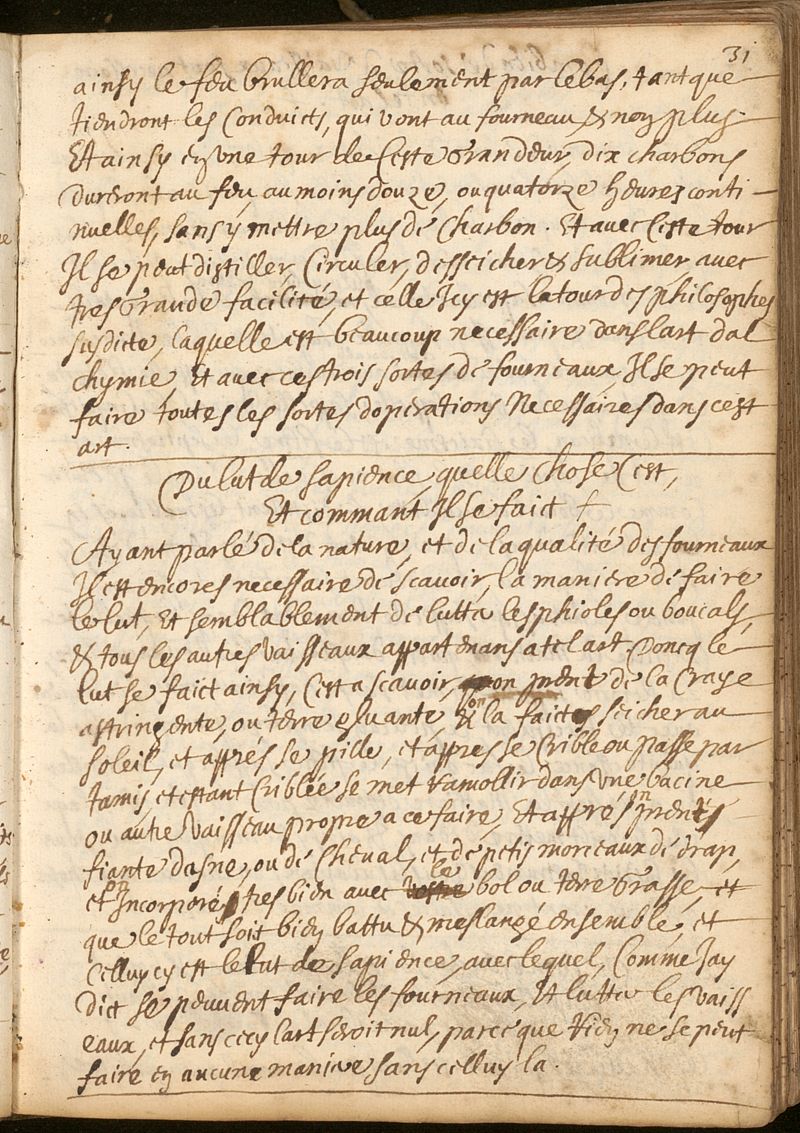 31
ainsy le feu brullera seulement par le bas, tant que
tiendront les Conduicts, qui vont au fourneau & non plus.
Et ainsy en une tour de Ceste Grandeur, dix charbons
dureront au feu, au moins douze, ou quatorze heures conti-
nuelles, sans y mettre plus de Charbon. Et avec Ceste tour
Il se peut distiller, Circuler, desseicher & sublimer avec
tres Grande facilité, et celle Icy est la tour des philosophes
susdicte, laquelle est beaucoup necessaire dans lart dal
chymie, Et avec ces trois sortes de fourneaux, Il se peut
faire toutes les sortes doperations Necessaires dans cest
art.
Du lut de sapience, quelle chose Cest,
Et commant Il se faict +
Ayant parlé de la nature, et de la qualité des fourneaux
Il est encores necessaire de scavoir, la maniere de faire
le lut, Et semblablement de lutter les phioles ou boucals,
& tous les autres vaisseaux appartenans a tel art. Doncq le
lut se faict ainsy, Cest a scavoir, on prent de la Craye
astringente, ou terre gluante, & on la faict seicher au
soleil, et apprés se pille, et appres se Crible ou passe par
tamis, et estant Criblée se met ramollir dans une bacine
ou autre vaisseau propre a ce faire, Et apprés on prent
fiante dasne, ou de Cheval, et de petis morceaux de drap,
et on Incorpore tres bien avec le bol ou terre Grasse, et
que le tout soit bien battu & meslangé ensemble, et
Celluy cy est le Lut de sapience, avec lequel, Comme Jay
dict se peuvent faire les fourneaux, Et lutter les vaiss
eaux, et sans cecy lart seroit nul, parce que Rien ne se peut
faire en aucune maniere sans celluy la.